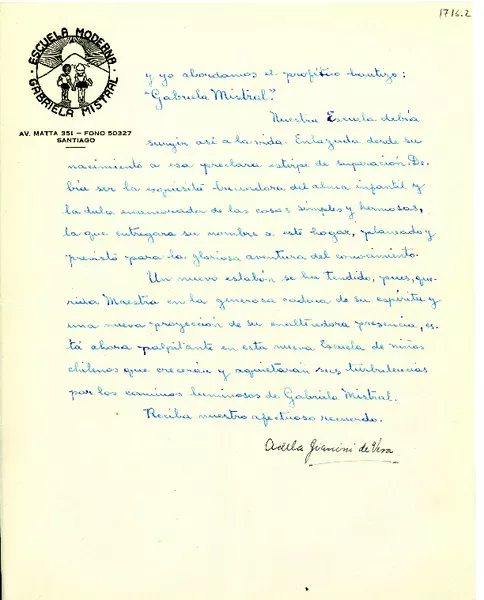 1716.2
ESCUELA MODERNA
GABRIELA MISTRAL
AV. MATTA 351 — FONO 50327
SANTIAGO
y yo abordamos el profético bautizo:
"Gabriela Mistral."
Nuestra Escuela debía
surgir así a la vida. Enlazada desde su
nacimiento a esa preclara estirpe de superación. De-
bía ser la exquisita buceadora del alma infantil y
la dulce enamorada de las cosas simples y hermosas,
la que entregara su nombre a este hogar, planeado y
previsto para la gloriosa aventura del conocimiento.
Un nuevo eslabón se ha tendido, pues, que-
rida Maestra en la generosa cadena de su espíritu y
una nueva proyección de su enaltecedora presencia, es-
tá ahora palpitante en esta nueva Escuela de niños
chilenos que crecerán y aquietarán sus turbulencias
por los caminos luminosos de Gabriela Mistral.
Reciba nuestro afectuoso recuerdo.
Adela Giancini de Vera